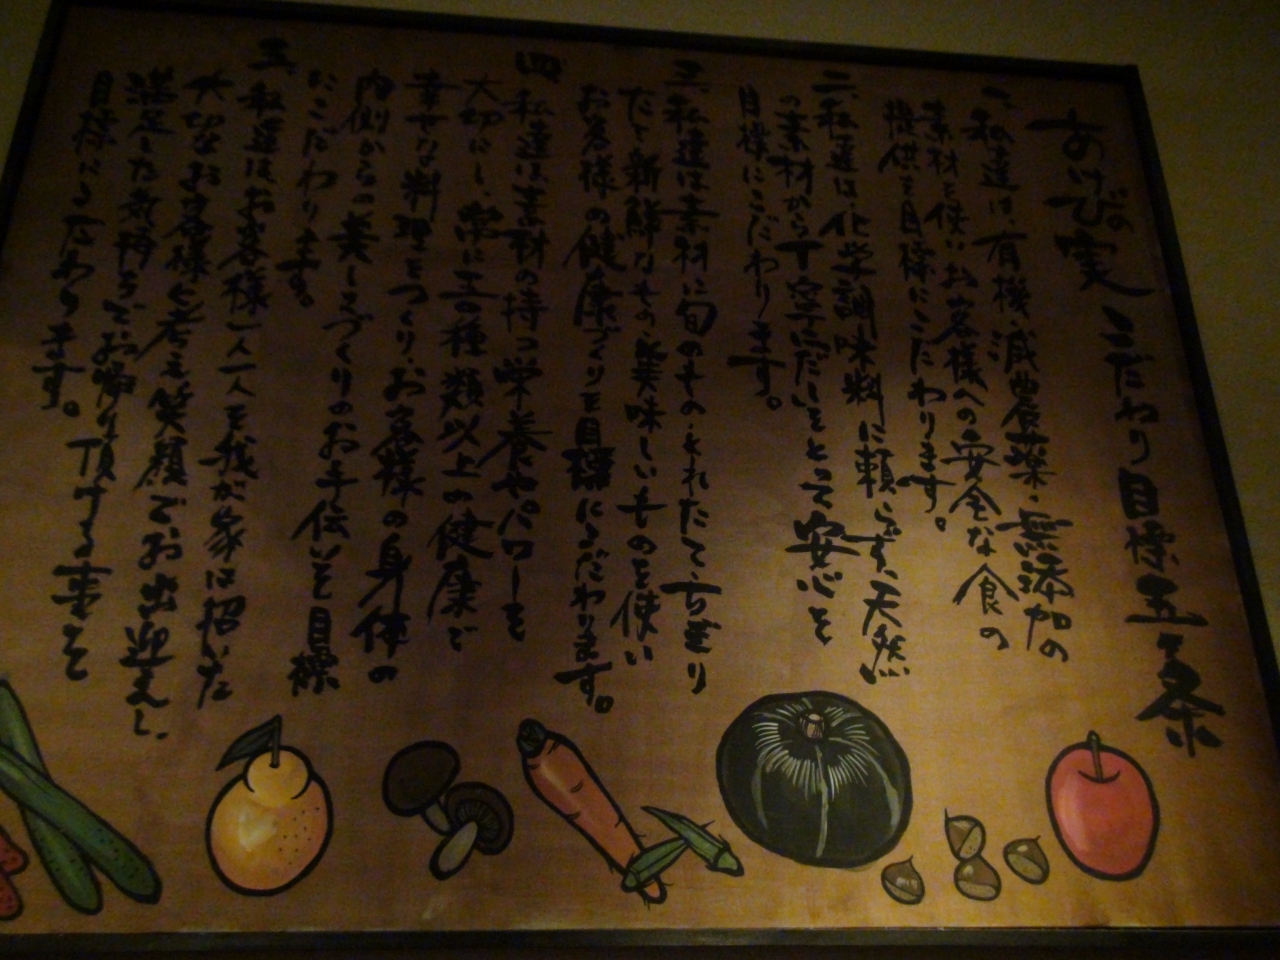 あけびの実 こだわり目標五ヶ条
一、私達は、有機・減農薬・無添加の
素材を使いお客様への安全な食の
提供を目標にこだわります。
二、私達は化学調味料に頼らず、天然
の素材から丁寧にだしをとって安心を
目標にこだわります。
三、私達は素材に旬のもの・とれたて・ちぎり
たて新鮮なもの美味しいものを使い
お客様の健康づくりを目標にこだわります。
四、私達は素材の持つ栄養やパワーを
大切にし、常に五〇種類以上の健康で
幸せな料理をつくり、お客様の身体の
内側からの美しさづくりのお手伝いを目標
にこだわります。
五、私達はお客様一人一人を我が家に招いた
大切なお客様と考え笑顔でお出迎えし、
満足した気持ちでお帰り頂ける事を
目標にこだわります。